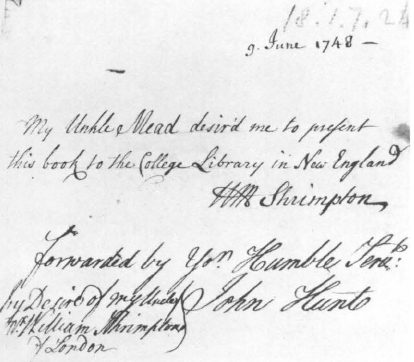 18.1.7.24
9. June 1748 —
My Unkle Mead desir'd me to present
this book to the College Library in New England
Wm Shrimpton
Forwarded by Yor. Humble Servt:
by Desire of my Uncle John Hunt
Mr William Shrimpton
of London